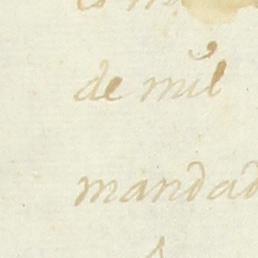 de mil
mandad